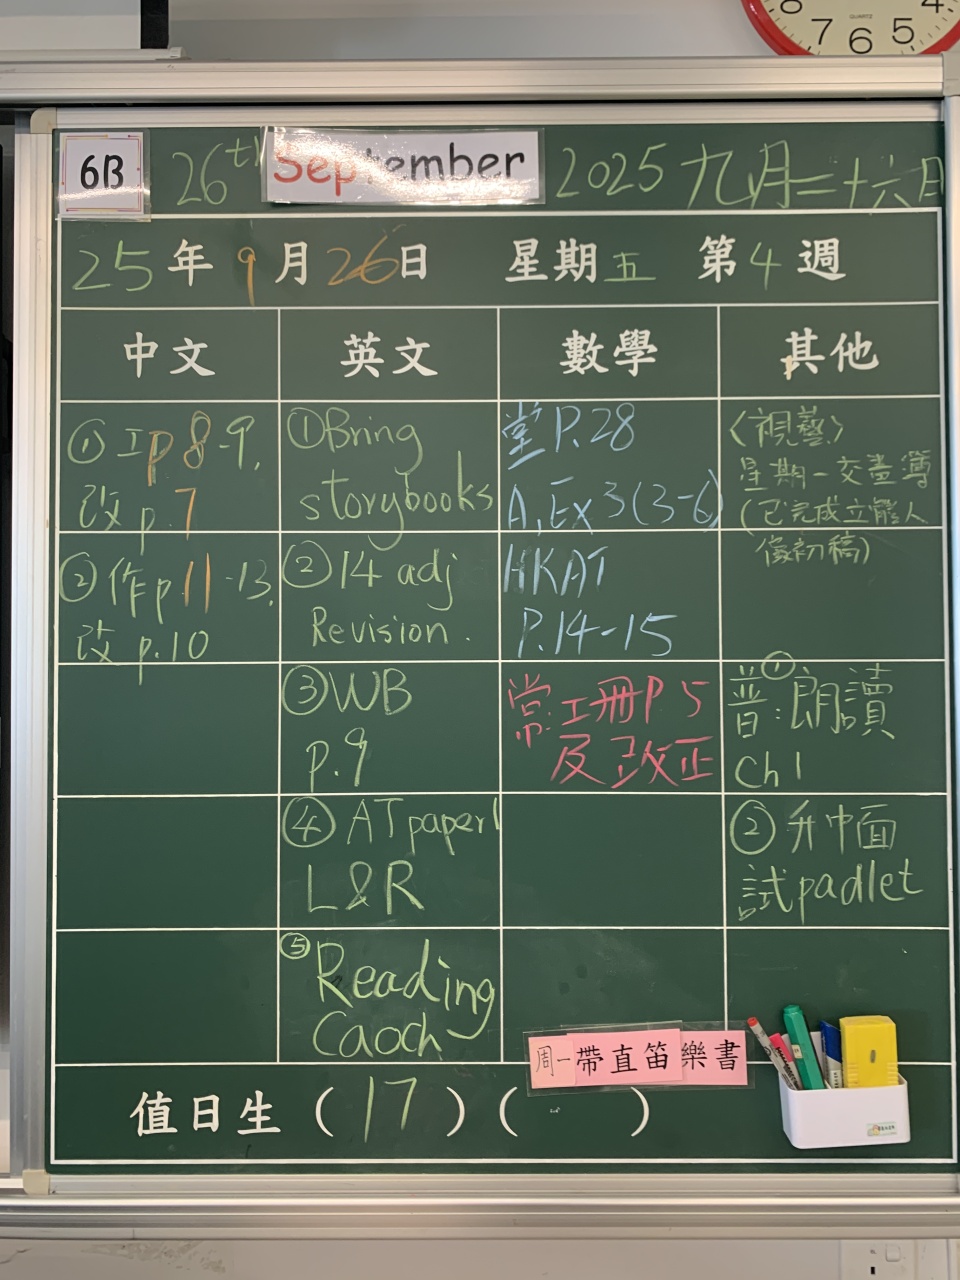 8 7 6 5 4
QUARTZ
6B 26th September 2025 九月二十六日
25年9月26日 星期五 第4週
中文 英文 數學 其他
①工p8-9,
改p.7
②作p11-13,
改p.10
①Bring
storybooks
②14 adj
Revision.
③WB
p.9
④ATpaper1
L&R
⑤Reading
Caoch
堂P.28
A,Ex3(3-6)
HKAT
P.14-15
常:工冊P.5
及改正
〈視藝〉
星期一交畫簿
(已完成立體人
像初稿)
普:①朗讀
Ch1
②升中面
試padlet
周一帶直笛樂書
值日生(17)( )